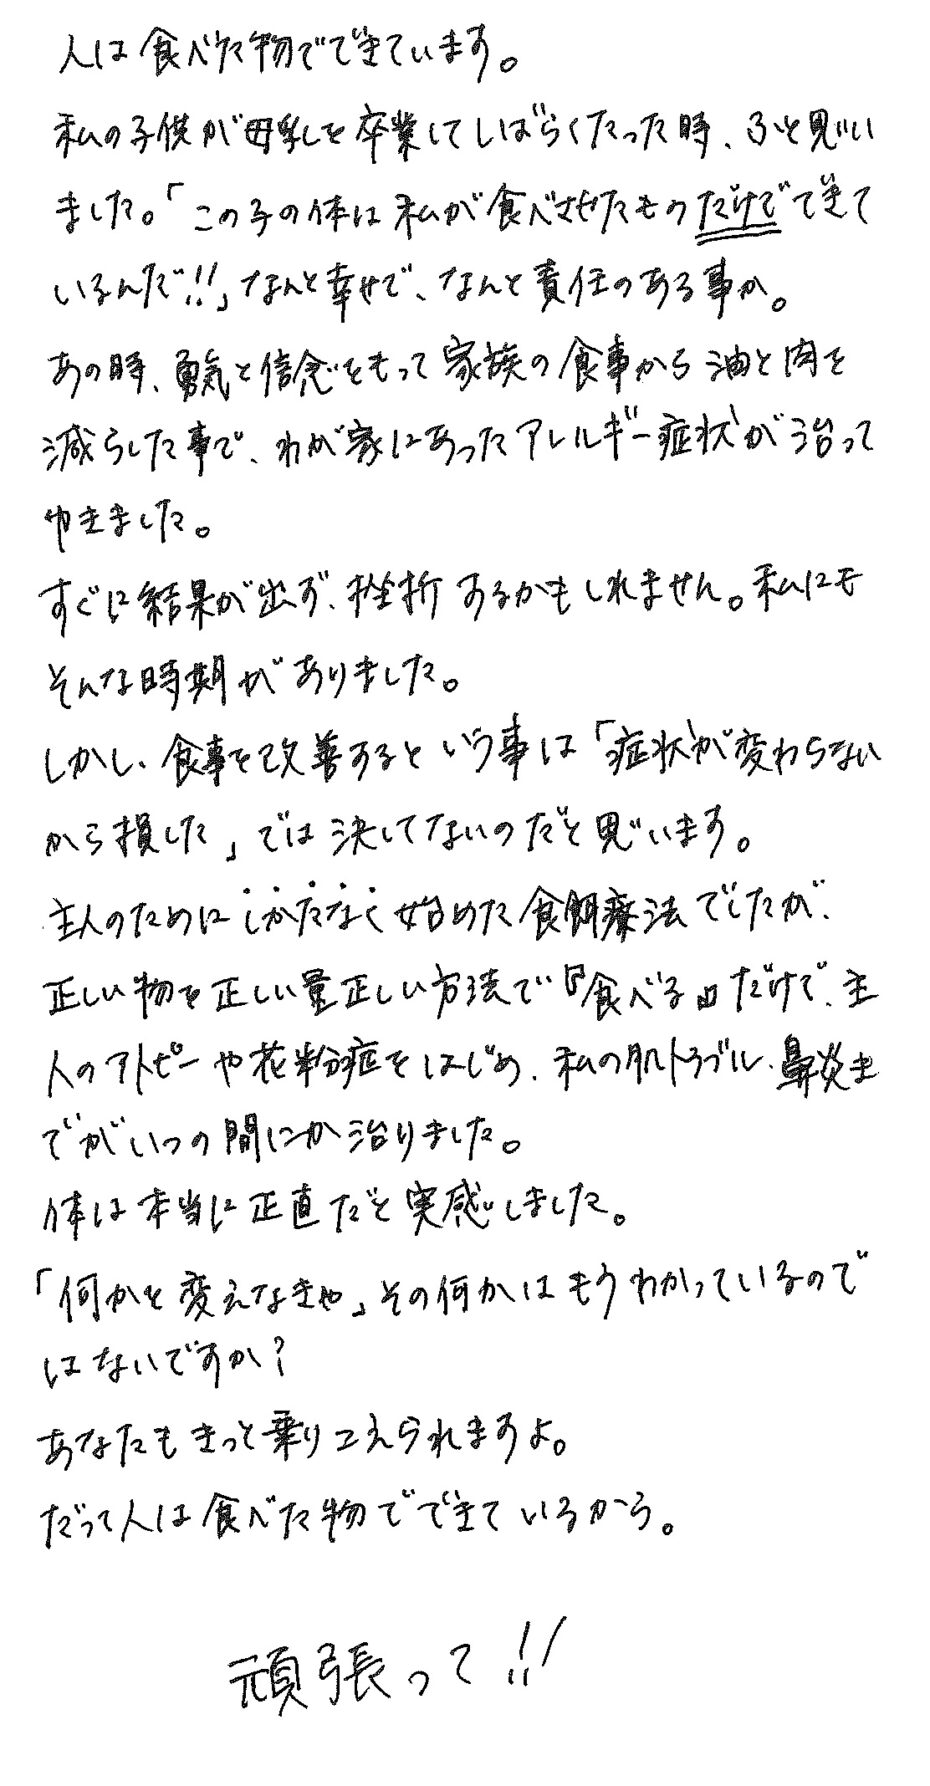 人は食べた物でできています。
私の子供が母乳を卒業してしばらくたった時、ふと思い
ました。「この子の体は私が食べさせたものだけでできて
いるんだ!!」なんと幸せで、なんと責任のある事か。
あの時、勇気と信念をもって家族の食事から油と肉を
減らした事で、わが家にあったアレルギー症状が治って
ゆきました。
すぐに結果が出ず、挫折するかもしれません。私にも
そんな時期がありました。
しかし、食事を改善するという事は「症状が変わらない
から損した」では決してないのだと思います。
主人のためにしかたなく始めた食餌療法でしたが、
正しい物を正しい量正しい方法で『食べる』だけで、主
人のアトピーや花粉症をはじめ、私の肌トラブル、鼻炎ま
でがいつの間にか治りました。
体は本当に正直だと実感しました。
「何かを変えなきゃ」その何かはもうわかっているので
はないですか?
あなたもきっと乗りこえられますよ。
だって人は食べた物でできているから。
頑張って!!